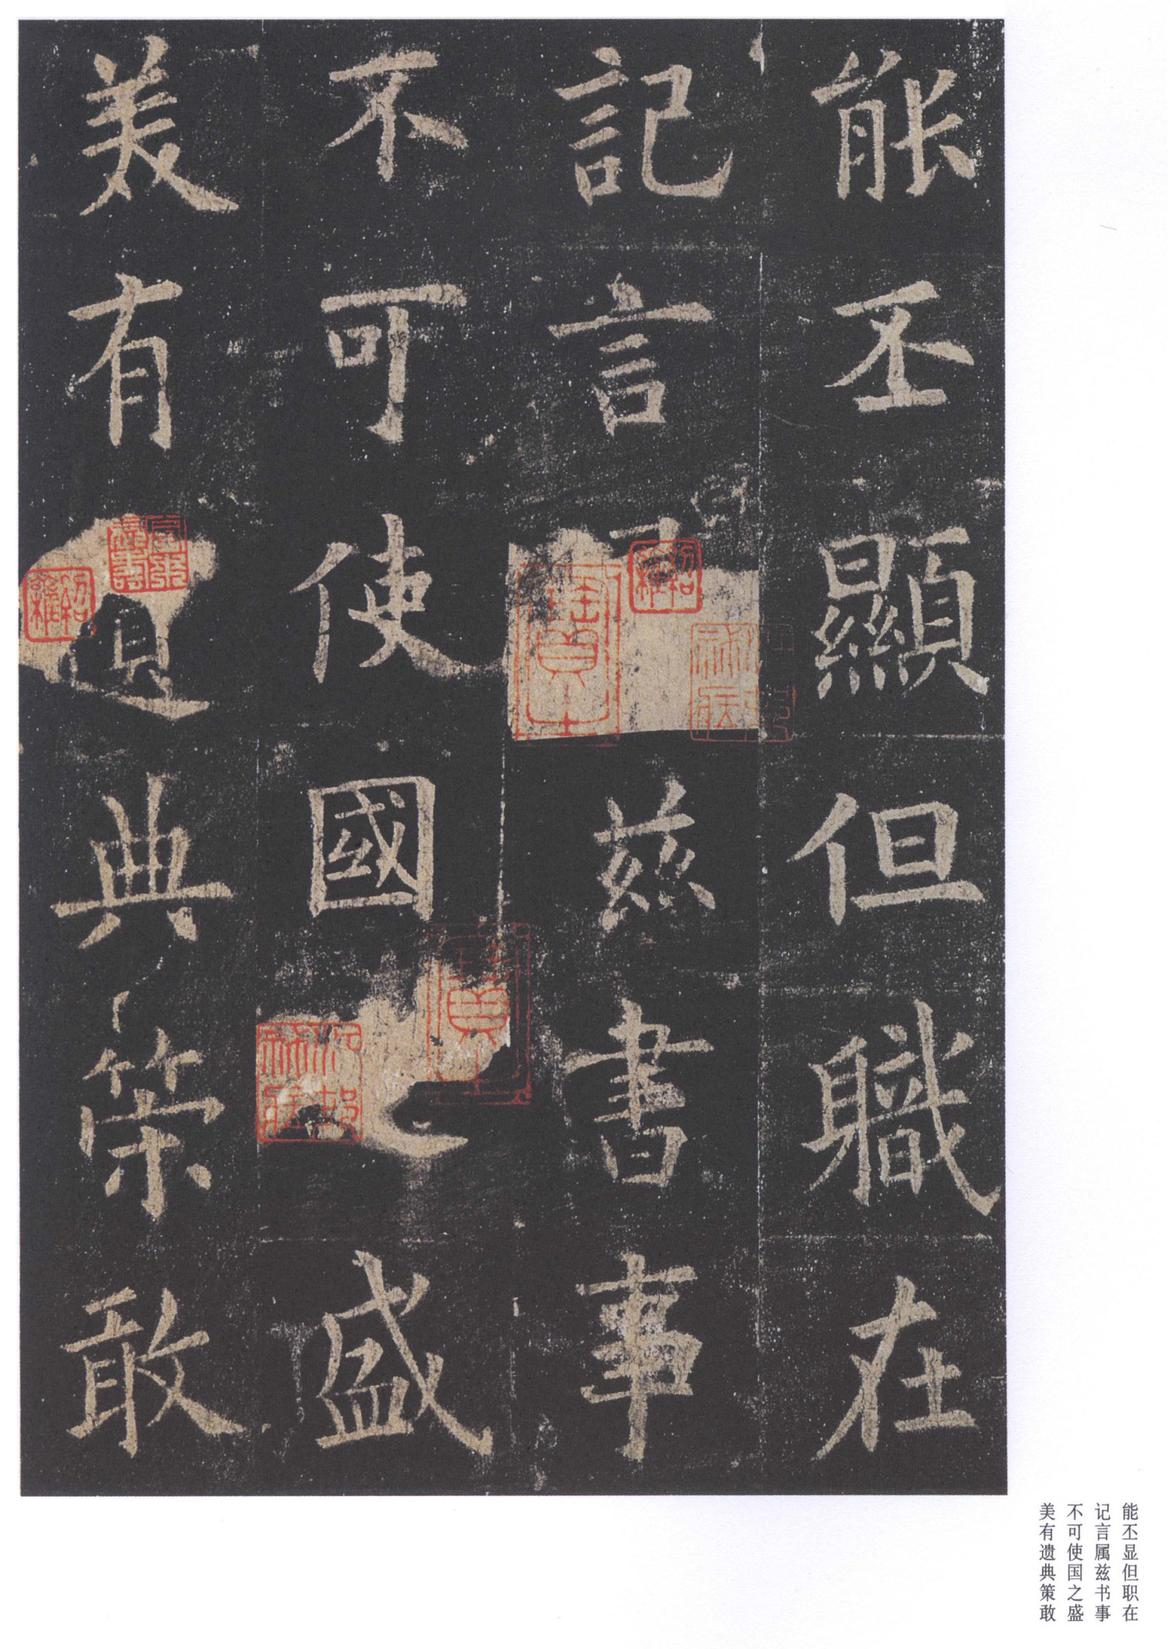 能丕顯但職在
記言兹書事
不可使國盛
美有遺典策敢
能丕显但职在
记言属兹书事
不可使国之盛
美有遗典策敢